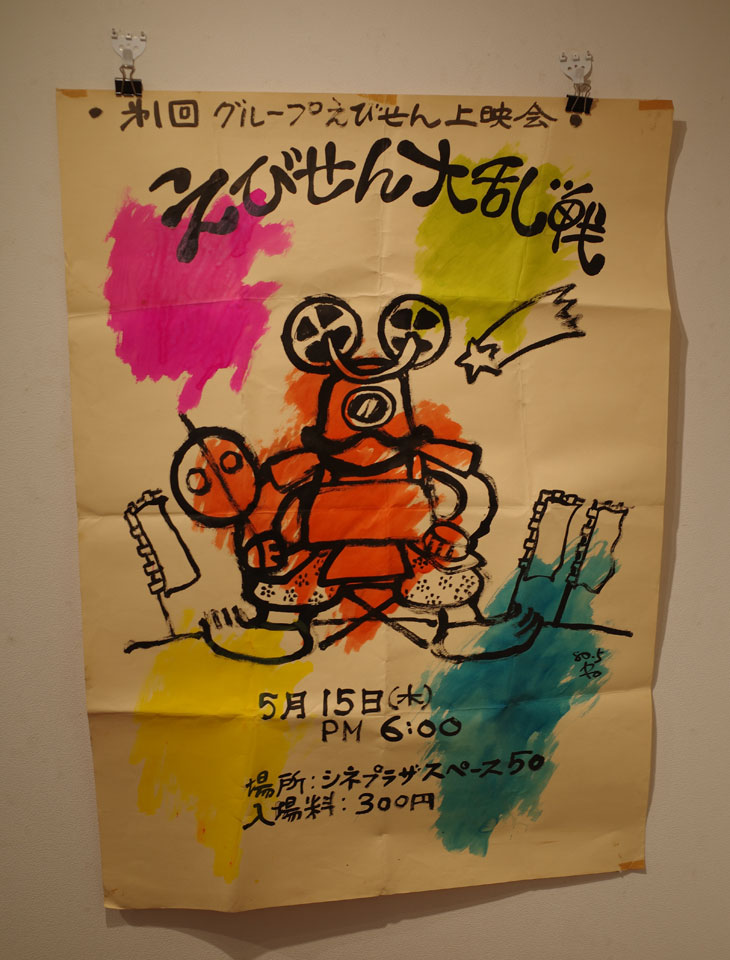 ・第1回 グループえびせん上映会・
えびせん大乱戦
80.5
5月15日(木)
PM 6:00
場所:シネプラザスペース50
入場料:300円